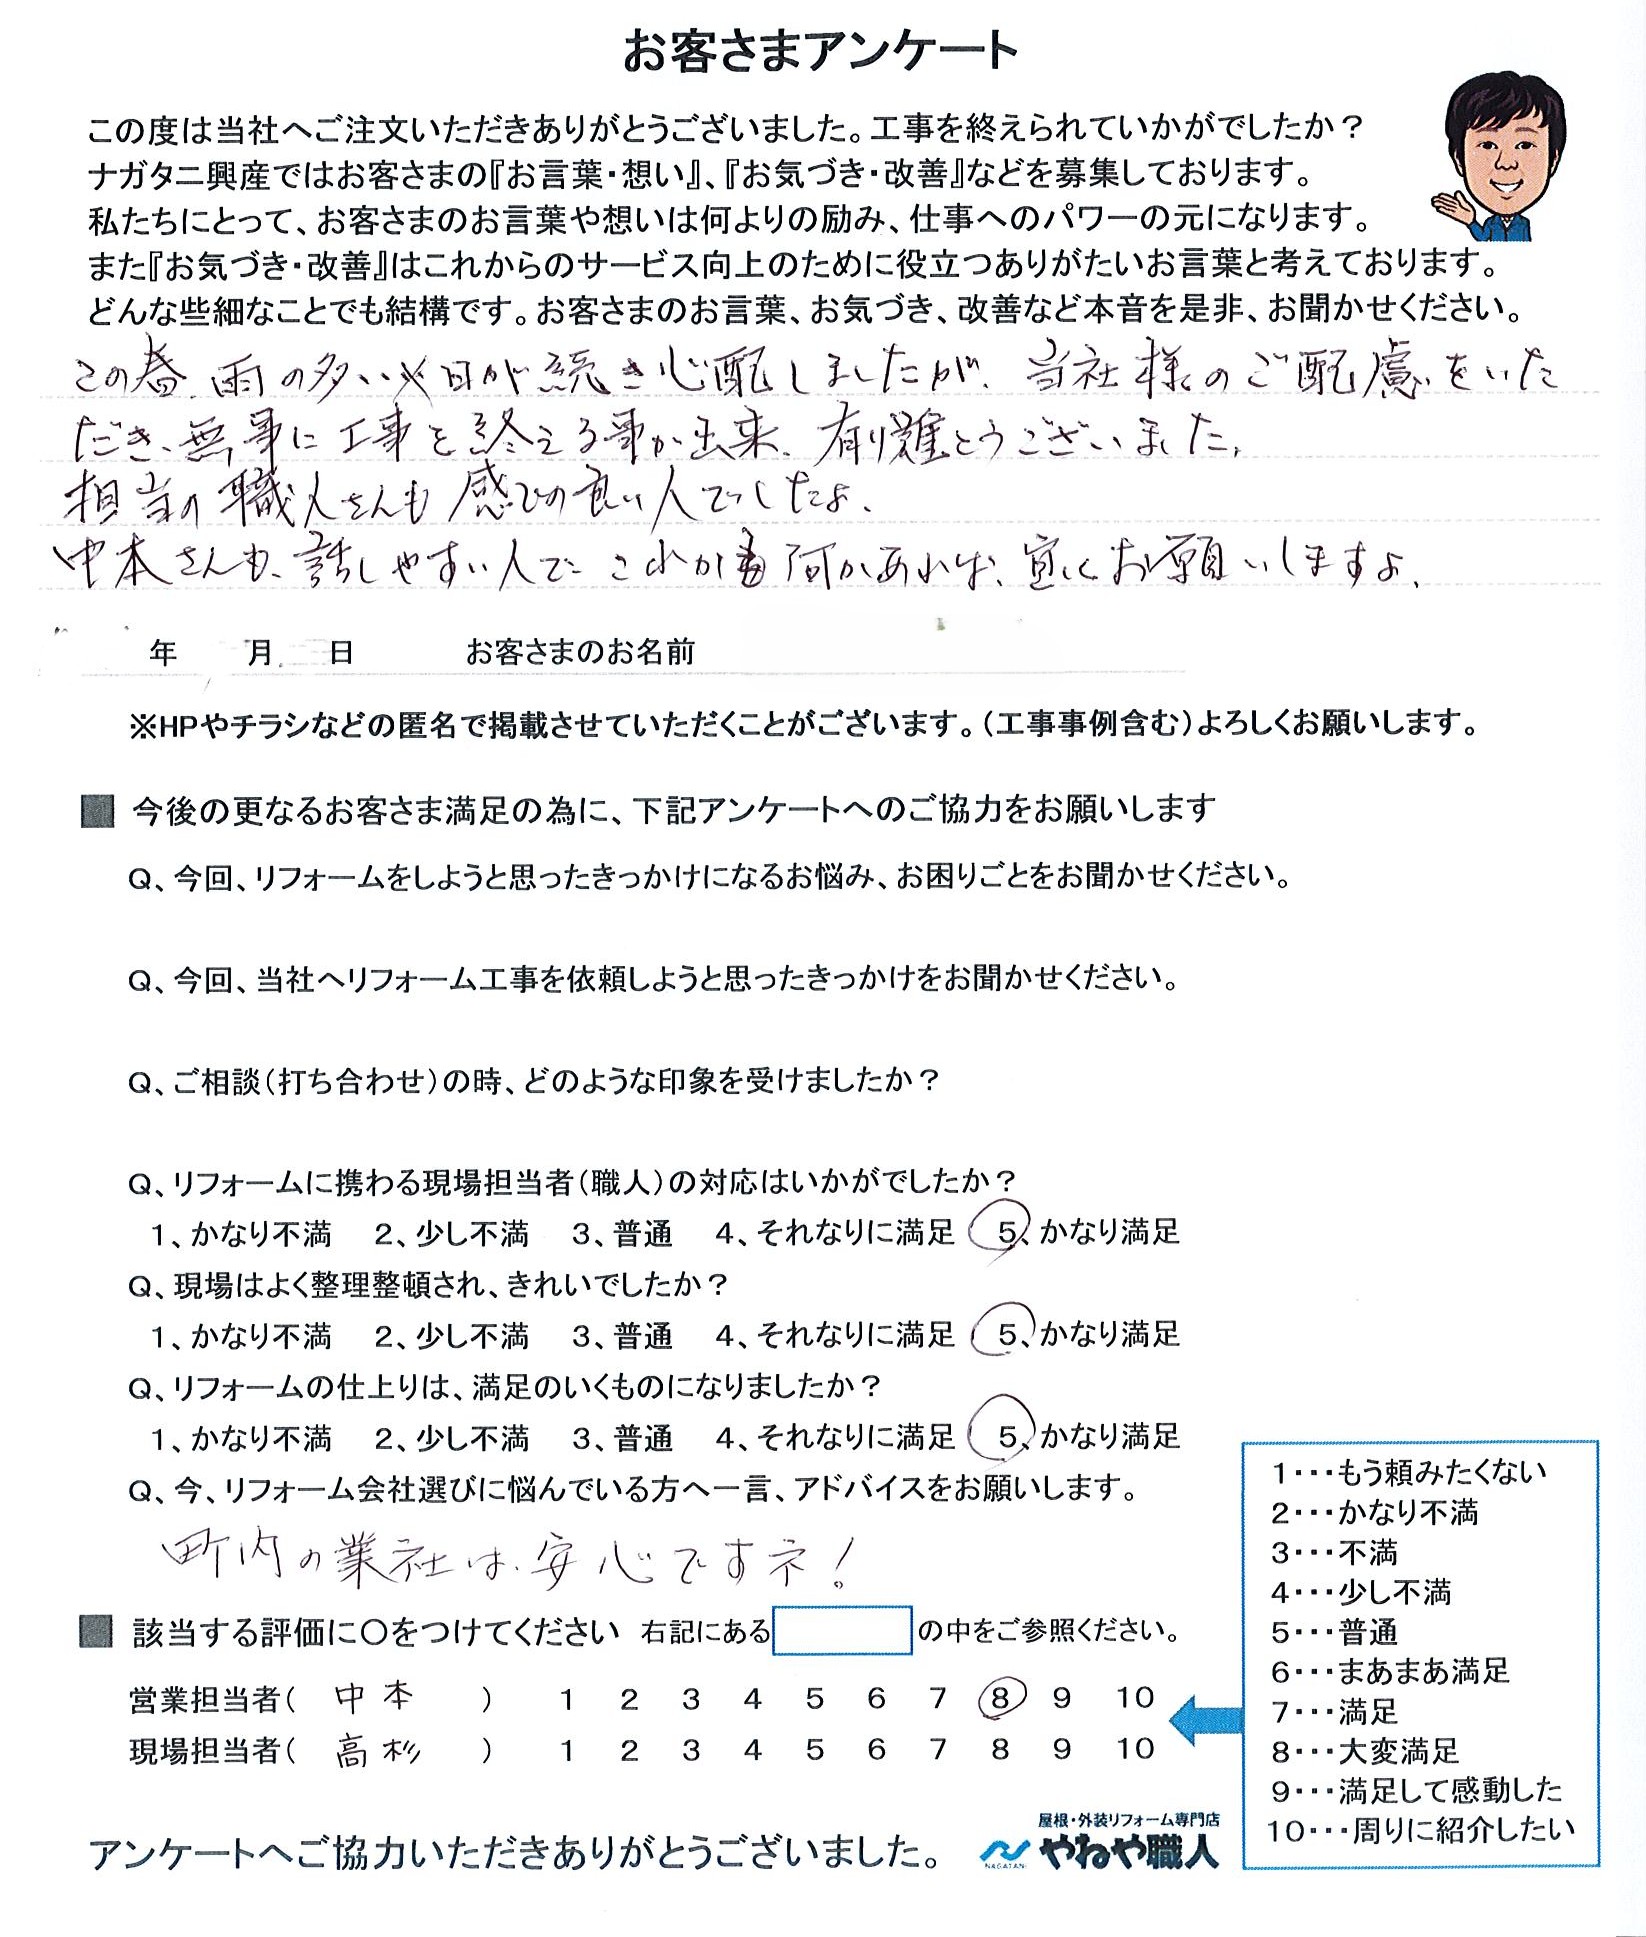 お客さまアンケート
この度は当社へご注文いただきありがとうございました。工事を終えられていかがでしたか？
ナガタニ興産ではお客さまの『お言葉・想い』、『お気づき・改善』などを募集しております。
私たちにとって、お客さまのお言葉や想いは何よりの励み、仕事へのパワーの元になります。
また『お気づき・改善』はこれからのサービス向上のために役立つありがたいお言葉と考えております。
どんな些細なことでも結構です。お客さまのお言葉、お気づき、改善など本音を是非、お聞かせください。
この春、雨の多い日が続き心配しましたが、当社様のご配慮をいた
だき、無事に工事を終える事が出来、有り難とうございました。
担当の職人さんも感じの良い人でしたよ、
中本さんも、話しやすい人で これからも何かあれば、宜しくお願いしますよ、
年 月 日 お客さまのお名前
※HPやチラシなどの匿名で掲載させていただくことがございます。（工事事例含む）よろしくお願いします。
■ 今後の更なるお客さま満足の為に、下記アンケートへのご協力をお願いします
Q、今回、リフォームをしようと思ったきっかけになるお悩み、お困りごとをお聞かせください。
Q、今回、当社へリフォーム工事を依頼しようと思ったきっかけをお聞かせください。
Q、ご相談（打ち合わせ）の時、どのような印象を受けましたか？
Q、リフォームに携わる現場担当者（職人）の対応はいかがでしたか？
1、かなり不満 2、少し不満 3、普通 4、それなりに満足 5、かなり満足
Q、現場はよく整理整頓され、きれいでしたか？
1、かなり不満 2、少し不満 3、普通 4、それなりに満足 5、かなり満足
Q、リフォームの仕上りは、満足のいくものになりましたか？
1、かなり不満 2、少し不満 3、普通 4、それなりに満足 5、かなり満足
Q、今、リフォーム会社選びに悩んでいる方へ一言、アドバイスをお願いします。
町内の業社は、安心ですネ！
■ 該当する評価に○をつけてください 右記にある の中をご参照ください。
営業担当者（ 中本 ） 1 2 3 4 5 6 7 8 9 10
現場担当者（ 高杉 ） 1 2 3 4 5 6 7 8 9 10
1・・・もう頼みたくない
2・・・かなり不満
3・・・不満
4・・・少し不満
5・・・普通
6・・・まあまあ満足
7・・・満足
8・・・大変満足
9・・・満足して感動した
10・・・周りに紹介したい
アンケートへご協力いただきありがとうございました。
NAGATANI
屋根・外装リフォーム専門店
やねや職人